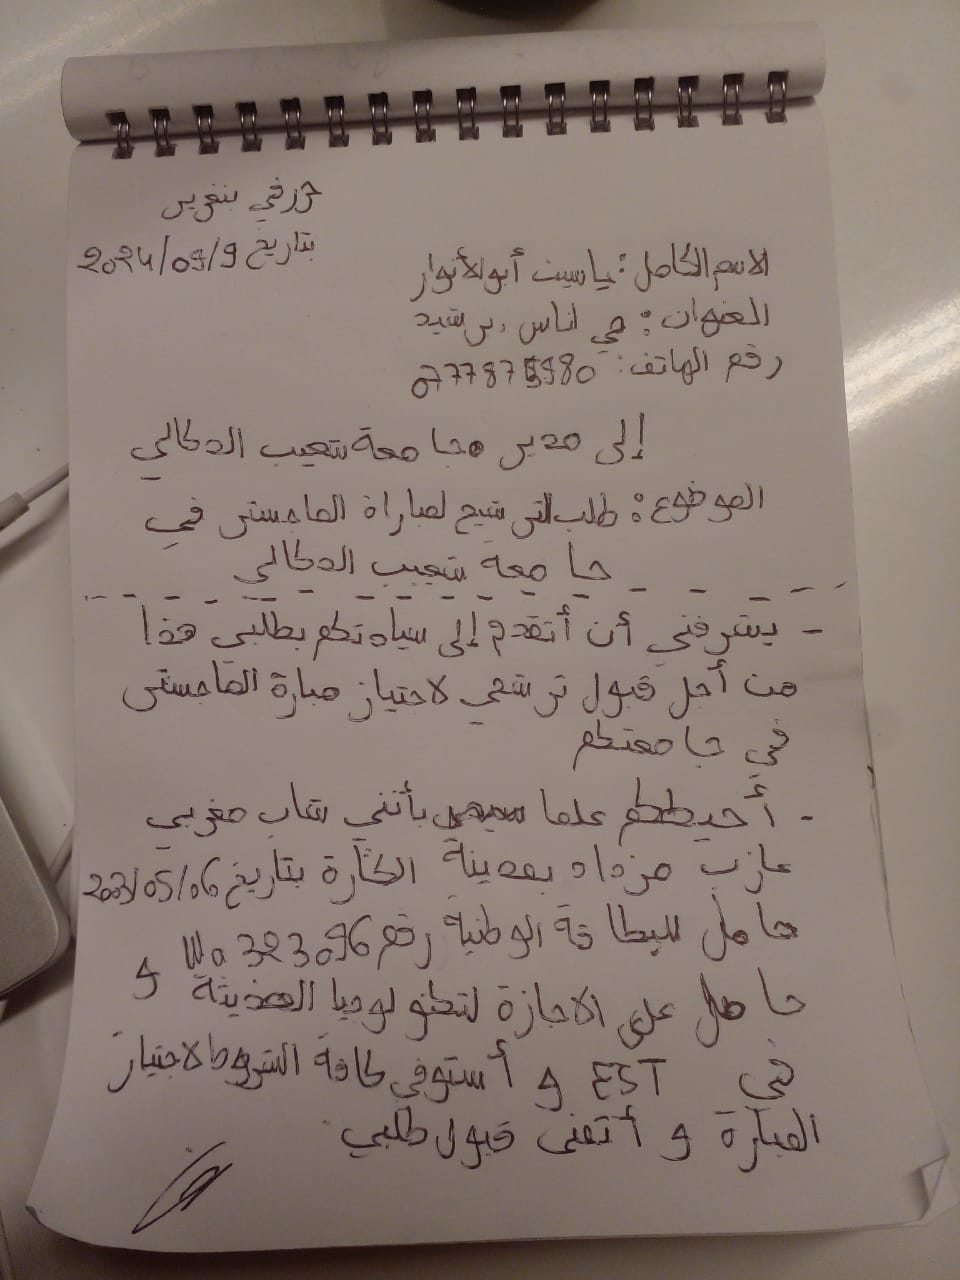 حرر في بنغرير
بتاريخ 2024/09/9
الاسم الكامل: ياسين أبو الأنوار
العنوان: حي اناس برشيد
رقم الهاتف: 0777875980
إلى مدير جامعة شعيب الدكالي
الموضوع: طلب الترشيح لمباراة الماجستر في
جامعة شعيب الدكالي
- يشرفني أن أتقدم إلى سيادتكم بطلبي هذا
من أجل قبول ترشحي لاجتياز مبارة الماجستر
في جامعتكم
- أحيطكم علما بأنني شاب مغربي
عازب مزداد بمدينة الگارة بتاريخ 2003/05/06
حامل للبطاقة الوطنية رقم Wa 323096 و
حاصل على الاجازة لتكنولوجيا
في EST و أستوفي كافة الشروط لاجتياز
المبارة و أتمنى قبول طلبي.